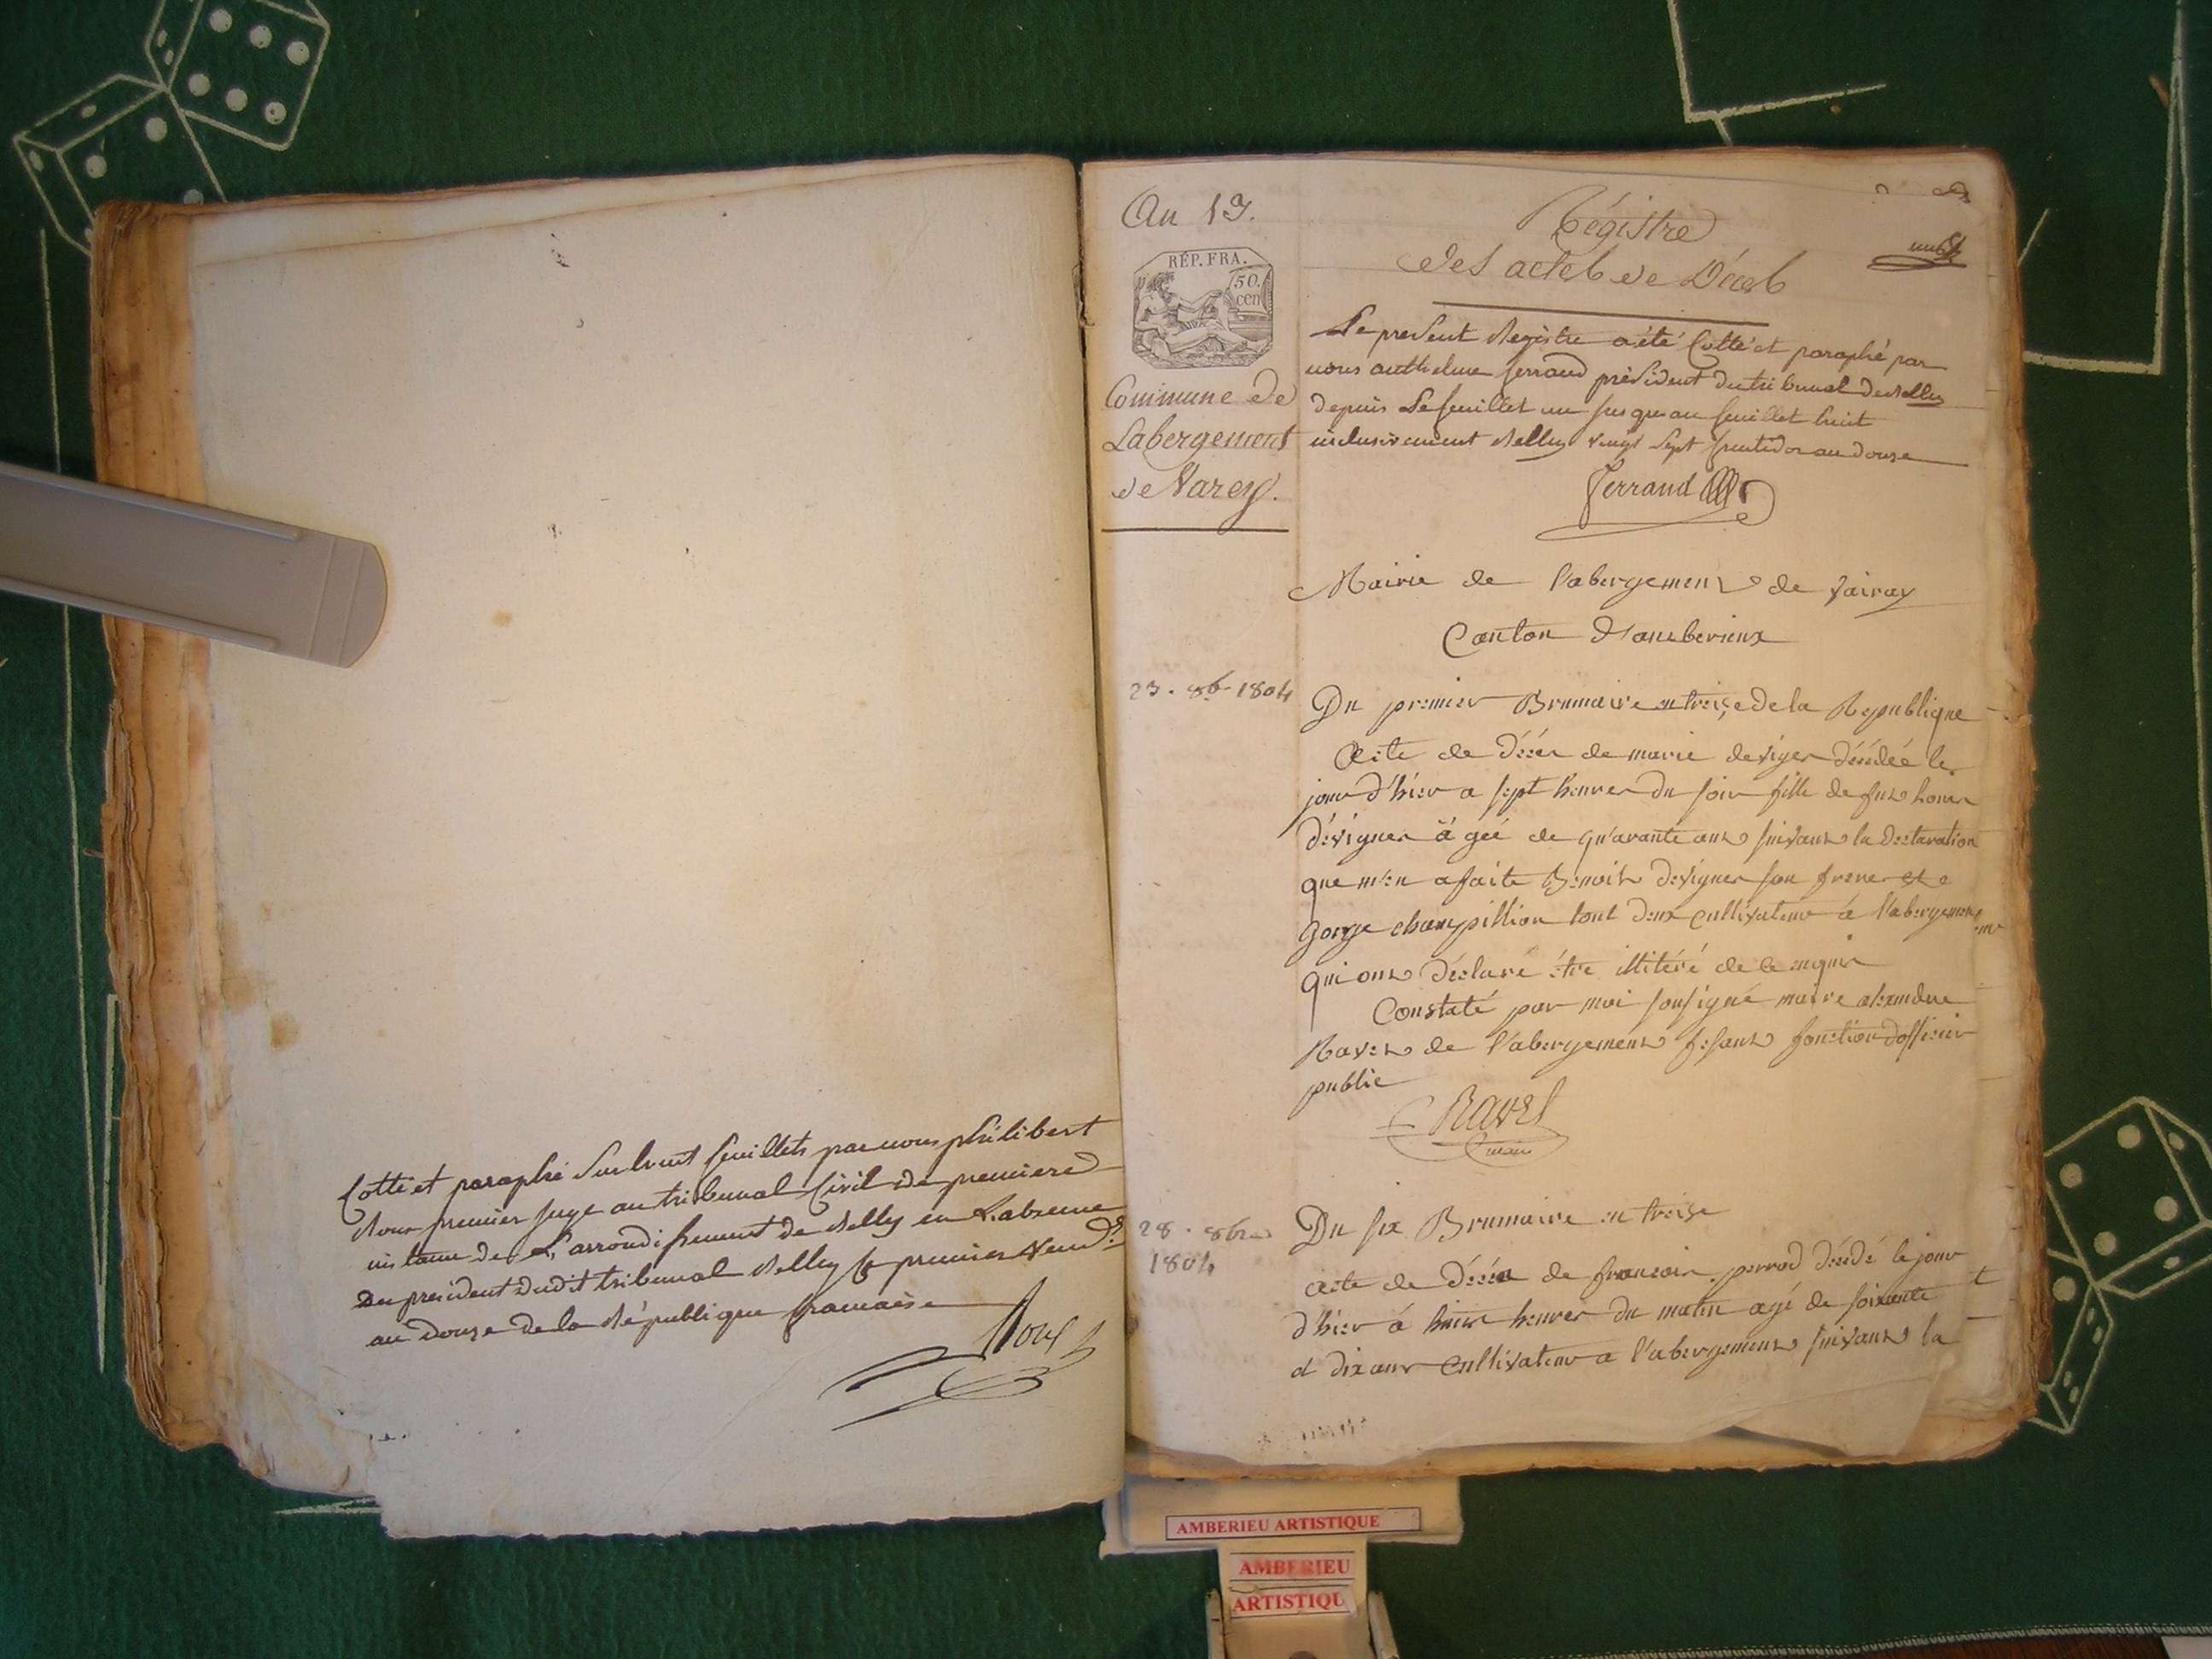 Cotté et paraphé sur huit feuillets par nous philibert
Roux premier juge au tribunal Civil de premiere
instance de L'arrondissement de Belley en L'absence
du president dudit tribunal Belley le premier Vend.re
an douze de la République francaise
Roux
An 13.
RÉP. FRA.
50
cen
Commune de
Labergement
de Varey.
Régistre
des actes de Décès
Le present Registre a été Cotté et paraphé par
nous anthelme ferrand président du tribunal de Belley
depuis Le feuillet un jusqu'au feuillet huit
inclusivement Belley vingt sept fructidor an douze
Ferrand
Mairie de l'abergement de vairay
Canton d'amberieux
23. 8b. 1804
Du premier Brumaire an treize de la Republique
Acte de décés de marie deviger décédée le
jour d'hier a sept heures du soir fille de fut
dévigner âgée de quarante ans suivant la declaration
que m'en a faite Benoit devigner son frere et
gorge champillion tout deux cultivateur a l'abergement
qui ont déclaré étre illitéré de ce enquis
Constaté par moi sousigné maire alexandre
Ravet de l'abergement fesant fonction d'officier
public
Ravet
maire
28. 8bre
1804
Du six Brumaire an treize
acte de décés de francois perrod décédé le jour
d'hier á huit heures du matin agé de soixante
et dix ans cultivateur a l'abergement suivant la
AMBERIEU ARTISTIQUE
AMBERIEU
ARTISTIQU